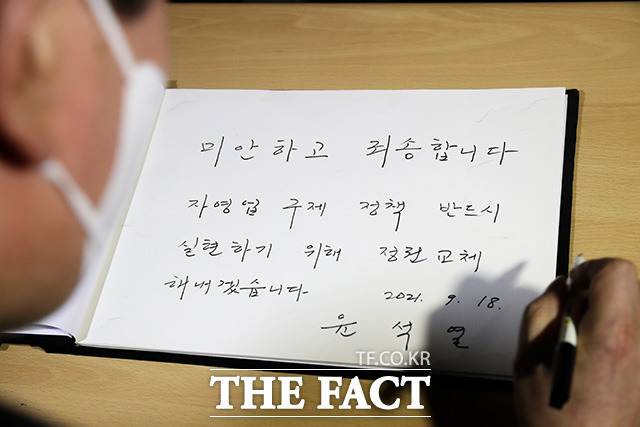 미안하고 죄송합니다
자영업 구제 정책 반드시
실현하기 위해 정권교체
해내겠습니다
2021. 9. 18.
윤석열
TF.CO.KR
THE FACT